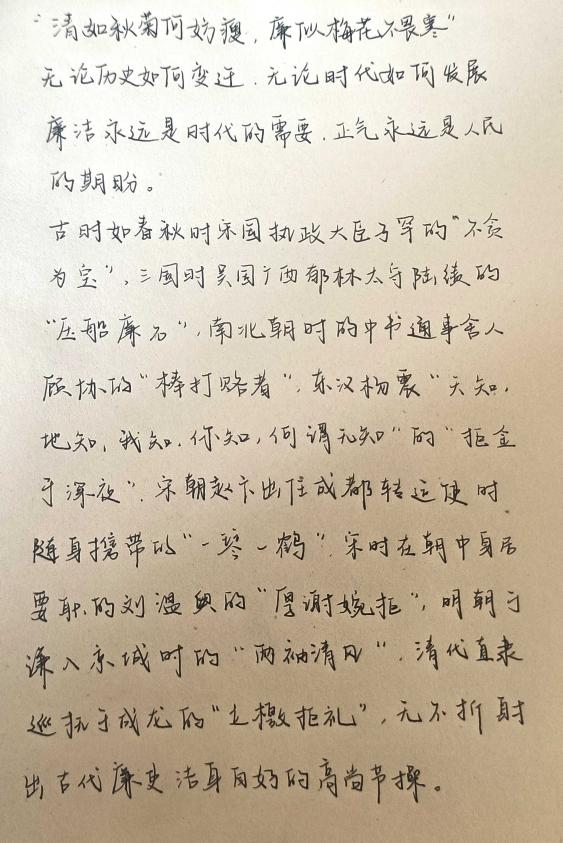 “清如秋菊何妨瘦，廉似梅花不畏寒”
无论历史如何变迁，无论时代如何发展
廉洁永远是时代的需要，正气永远是人民
的期盼。
古时如春秋时宋国执政大臣子罕的“不贪
为宝”，三国时吴国广西郁林太守陆绩的
“压船廉石”，南北朝时的中书通事舍人
顾协的“棒打赂者”，东汉杨震“天知，
地知，我知，你知，何谓无知”的“拒金
于深夜”，宋朝赵卞出任成都转运使时
随身携带的“一琴一鹤”，宋时在朝中身居
要职的刘温叟的“厚谢婉拒”，明朝于
谦入京城时的“两袖清风”，清代直隶
巡抚于成龙的“立檄拒礼”，无不折射
出古代廉吏洁身自好的高尚节操。